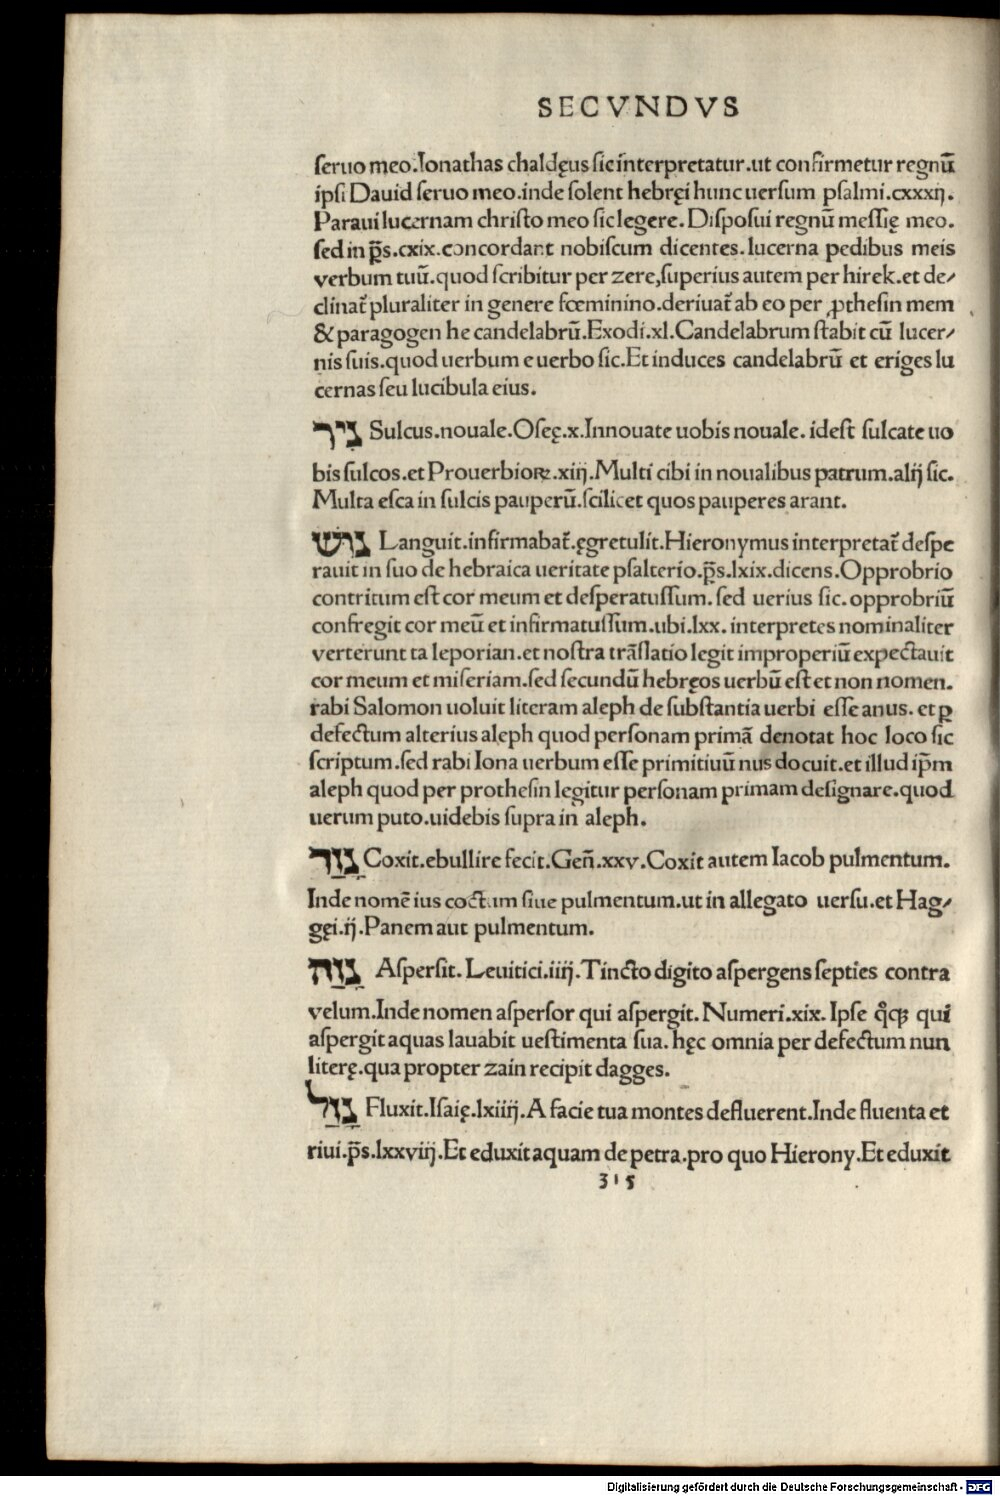 SECVNDVS
ſeruo meo.Ionathas chaldęus ſic interpretatur.ut confirmetur regnū
ipſi Dauid ſeruo meo.inde ſolent hebręi hunc uerſum pſalmi.cxxxij.
Paraui lucernam chriſto meo ſic legere. Diſpoſui regnū meſſię meo.
ſed in p̄s.cxix.concordant nobiſcum dicentes.lucerna pedibus meis
verbum tuū.quod ſcribitur per zere,ſuperius autem per hirek.et de⸗
clinat̄ pluraliter in genere fœminino.deriuat̄ ab eo per ꝓtheſin mem
& paragogen he candelabrū.Exodi.xl.Candelabrum ſtabit cū lucer⸗
nis ſuis.quod uerbum e uerbo ſic.Et induces candelabrū et eriges lu
cernas ſeu lucibula eius.
נִיר Sulcus.nouale.Oſeę.x.Innouate uobis nouale. ideſt ſulcate uo
bis ſulcos.et Prouerbioꝝ.xiij.Multi cibi in noualibus patrum.alij ſic.
Multa eſca in ſulcis pauperū.ſcilicet quos pauperes arant.
נוּשׁ Languit.infirmabat̄.ęgretulit.Hieronymus interpretat̄ deſpe
rauit in ſuo de hebraica ueritate pſalterio.p̄s.lxix.dicens.Opprobrio
contritum eſt cor meum et deſperatuſſum. ſed uerius ſic. opprobriū
confregit cor meū et infirmatuſſum.ubi.lxx. interpretes nominaliter
verterunt ta leporian.et noſtra trāſlatio legit improperiū expectauit
cor meum et miſeriam.ſed ſecundū hebręos uerbū eſt et non nomen.
rabi Salomon uoluit literam aleph de ſubſtantia uerbi eſſe anus. et ꝑ
defectum alterius aleph quod perſonam primā denotat hoc loco ſic
ſcriptum.ſed rabi Iona uerbum eſſe primitiuū nus docuit.et illud ip̄m
aleph quod per protheſin legitur perſonam primam deſignare.quod
uerum puto.uidebis ſupra in aleph.
נָזַד Coxit.ebullire fecit.Geñ.xxv.Coxit autem Iacob pulmentum.
Inde nomē ius coctum ſiue pulmentum.ut in allegato uerſu.et Hag⸗
gęi.ij.Panem aut pulmentum.
נָזָה Aſperſit. Leuitici.iiij.Tincto digito aſpergens ſepties contra
velum.Inde nomen aſperſor qui aſpergit. Numeri.xix. Ipſe q̊qꝫ qui
aſpergit aquas lauabit ueſtimenta ſua. hęc omnia per defectum nun
literę.qua propter zain recipit dagges.
נָזַל Fluxit.Iſaię.lxiiij.A facie tua montes defluerent.Inde fluenta et
riui.p̄s.lxxviij.Et eduxit aquam de petra.pro quo Hierony.Et eduxit
315
Digitalisierung gefördert durch die Deutsche Forschungsgemeinschaft - DFG